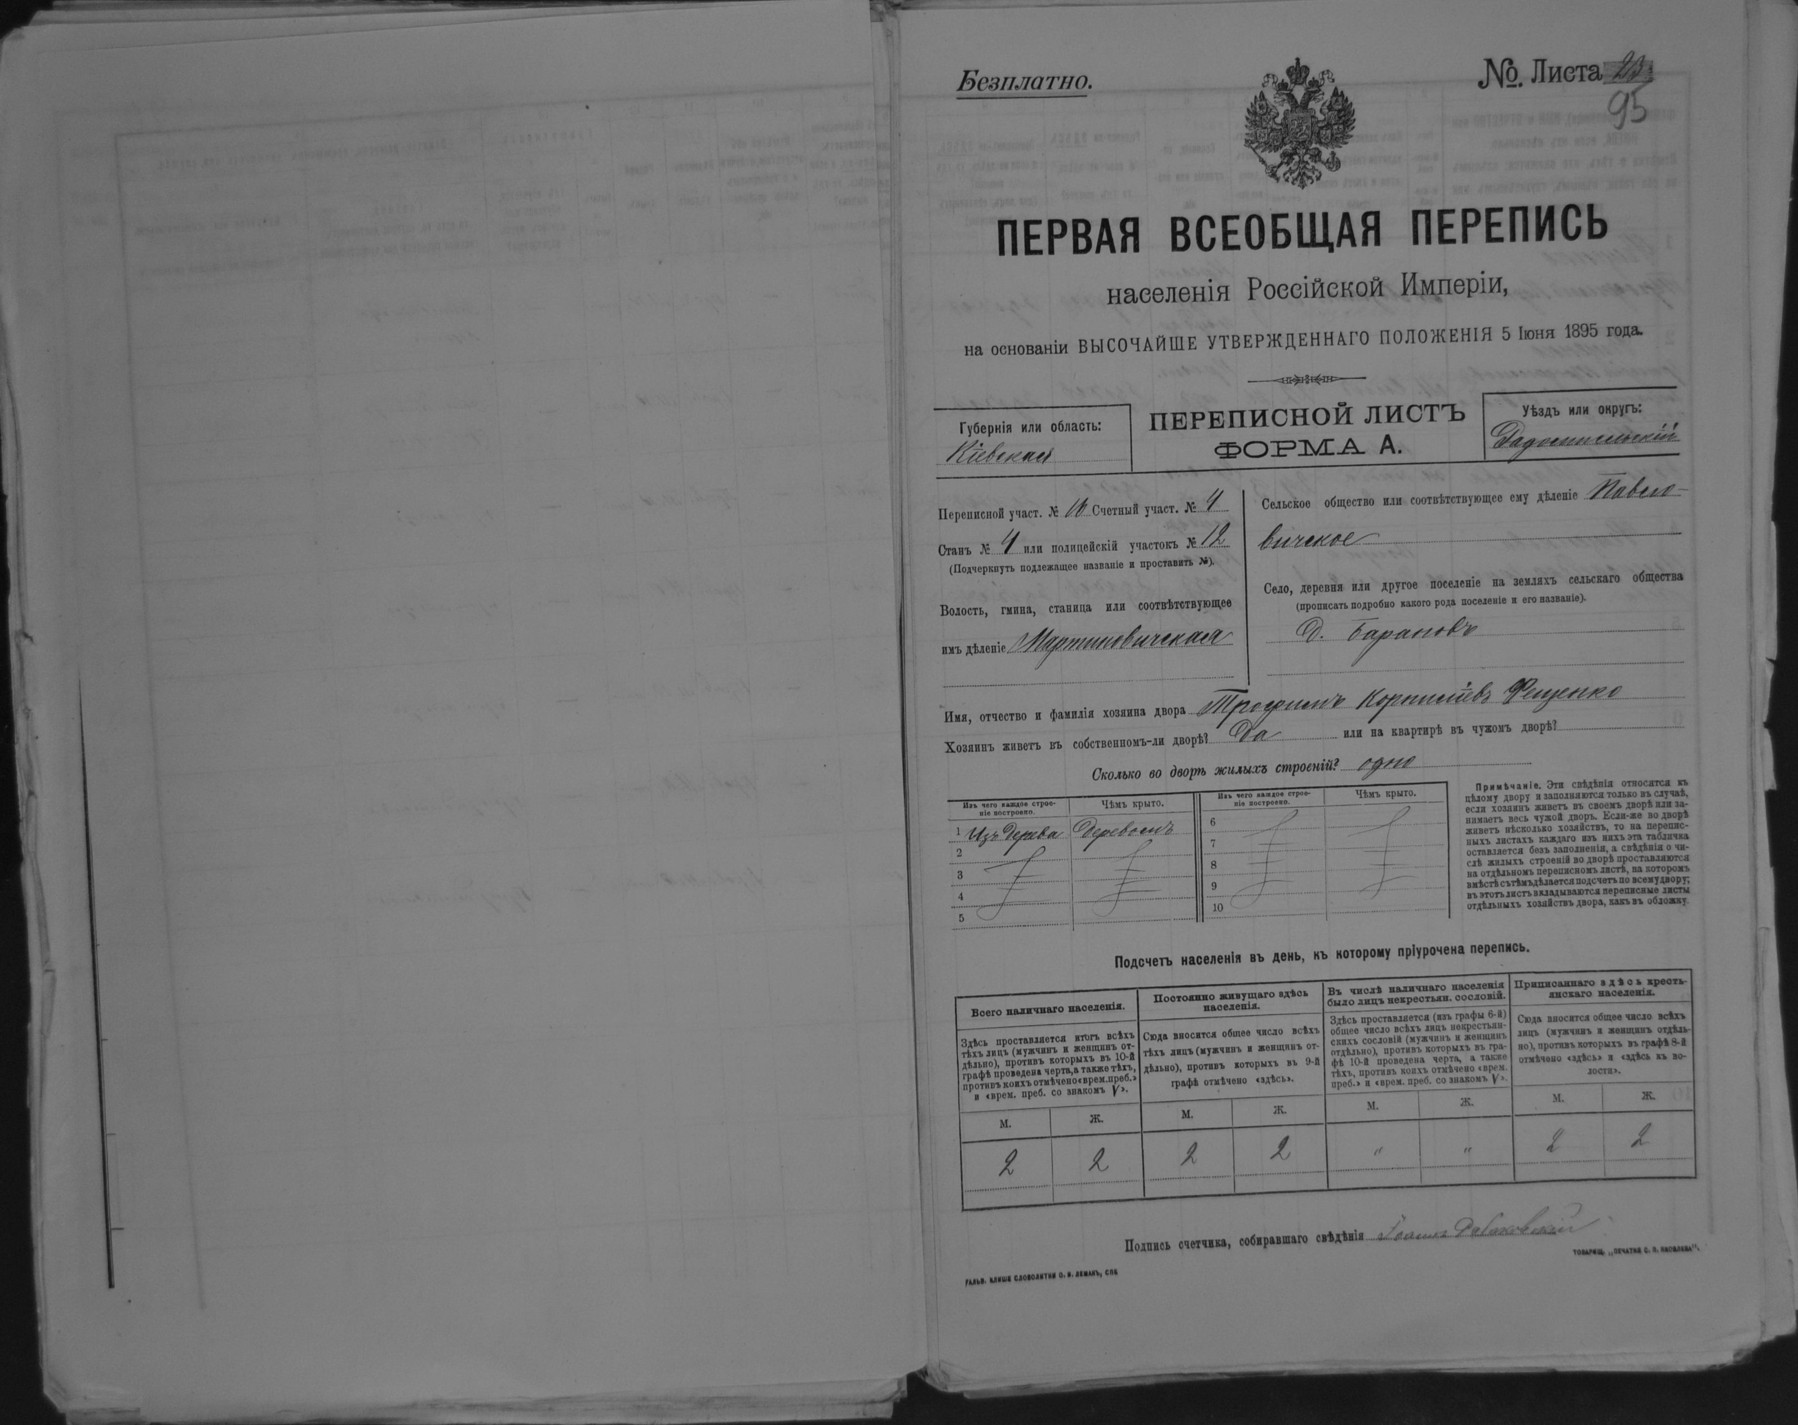 Безплатно.
№. Листа 23
95
ПЕРВАЯ ВСЕОБЩАЯ ПЕРЕПИСЬ
населенія Россійской Имперіи,
на основаніи ВЫСОЧАЙШЕ УТВЕРЖДЕННАГО ПОЛОЖЕНІЯ 5 Іюня 1895 года.
Губернія или область:
Кіевская
ПЕРЕПИСНОЙ ЛИСТЪ
ФОРМА А.
Уѣздъ или округъ:
Радомысльскій
Переписной участ. № 10 Счетный участ. № 4
Станъ № 4 или полицейскій участокъ № 12
(Подчеркнуть подлежащее названіе и проставить №).
Волость, гмина, станица или соотвѣтствующее
имъ дѣленіе Мартиновичская
Сельское общество или соотвѣтствующее ему дѣленіе Павло-
вичское
Село, деревня или другое поселеніе на земляхъ сельскаго общества
(прописать подробно какого рода поселеніе и его названіе).
Д. Барановъ
Имя, отчество и фамилія хозяина двора Трофимъ Корниліевъ Фещенко
Хозяинъ живетъ въ собственномъ-ли дворѣ? Да или на квартирѣ въ чужомъ дворѣ?
Сколько во дворѣ жилыхъ строеній? одно
Изъ чего каждое строе-
ніе построено.
Чѣмъ крыто.
1 Изъ дерева Деревомъ
2
3
4
5
Изъ чего каждое строе-
ніе построено.
Чѣмъ крыто.
6
7
8
9
10
Примѣчаніе. Эти свѣдѣнія относятся къ
цѣлому двору и заполняются только въ случаѣ,
если хозяинъ живетъ въ своемъ дворѣ или за-
нимаетъ весь чужой дворъ. Если-же во дворѣ
живетъ нѣсколько хозяйствъ, то на перепис-
ныхъ листахъ каждаго изъ нихъ эта табличка
оставляется безъ заполненія, а свѣдѣнія о чи-
слѣ жилыхъ строеній во дворѣ проставляются
на отдѣльномъ переписномъ листѣ, на которомъ
вмѣстѣ съ тѣмъ дѣлается подсчетъ по всему двору;
въ этотъ листъ вкладываются переписные листы
отдѣльныхъ хозяйствъ двора, какъ въ обложку.
Подсчетъ населенія въ день, къ которому пріурочена перепись.
Всего наличнаго населенія.
Здѣсь проставляется итогъ всѣхъ
тѣхъ лицъ (мужчинъ и женщинъ от-
дѣльно), противъ которыхъ въ 10-й
графѣ проведена черта, а также тѣхъ,
противъ коихъ отмѣчено «врем. преб.»
и «врем. преб. со знакомъ V».
М. Ж.
2 2
Постоянно живущаго здѣсь
населенія.
Сюда вносится общее число всѣхъ
тѣхъ лицъ (мужчинъ и женщинъ от-
дѣльно), противъ которыхъ въ 9-й
графѣ отмѣчено «здѣсь».
М. Ж.
2 2
Въ числѣ наличнаго населенія
было лицъ некрестьян. сословій.
Здѣсь проставляется (изъ графы 6-й)
общее число всѣхъ лицъ некрестьян-
скихъ сословій (мужчинъ и женщинъ
отдѣльно), противъ которыхъ въ гра-
фѣ 10-й проведена черта, а также
тѣхъ, противъ коихъ отмѣчено «врем.
преб.» и «врем. преб. со знакомъ V».
М. Ж.
" "
Приписаннаго здѣсь кресть-
янскаго населенія.
Сюда вносится общее число всѣхъ
лицъ (мужчинъ и женщинъ отдѣль-
но), противъ которыхъ въ графѣ 8-й
отмѣчено «здѣсь» и «здѣсь въ во-
лости».
М. Ж.
2 2
Подпись счетчика, собиравшаго свѣдѣнія
ГАЛЬВ. КЛИШЕ СЛОВОЛИТНИ О. И. ЛЕМАНЪ, СПБ
ТОВАРИЩ. „ПЕЧАТНЯ С. П. ЯКОВЛЕВА“.